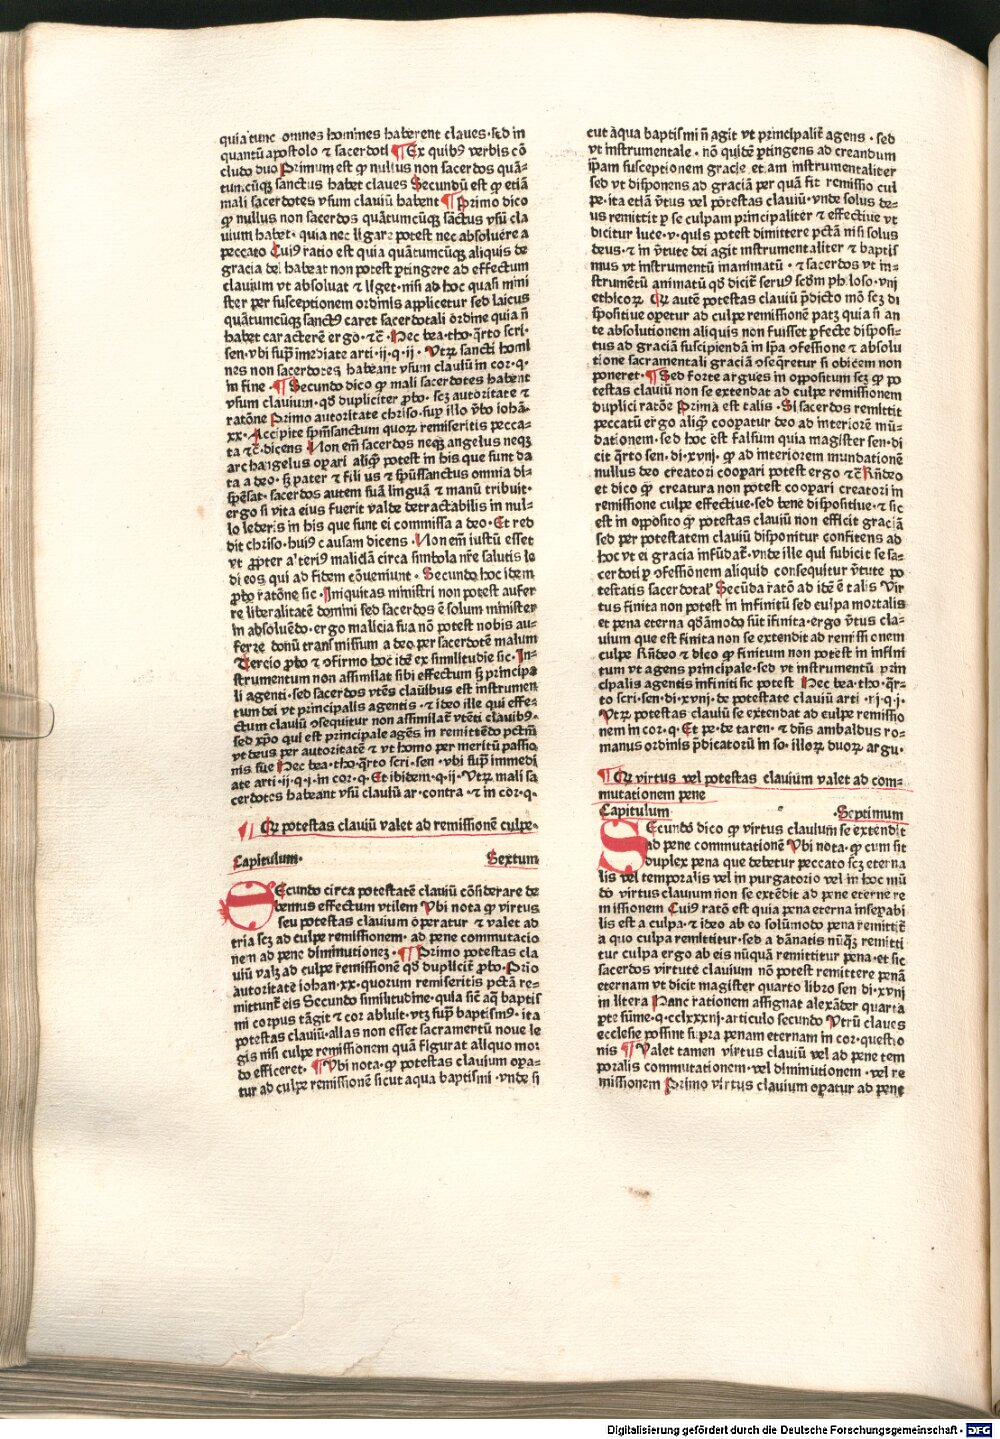 quia tunc omnes homines haberent claues·sed in
quantū apostolo ⁊ sacerdoti ¶Ex quibꝰ verbis cō
cludo duo Primum est ꝙ nullus non sacerdos quā-
tumcūqꝫ sanctus habet claues Secundū est ꝙ etiā
mali sacerdotes vsum clauiū habent ¶Primo dico
ꝙ nullus non sacerdos quātumcūqꝫ sāctus vsū cla
uium habet· quia nec ligare potest nec absoluere a
peccato Cuiꝰ ratio est quia quātumcūqꝫ aliquis de
gracia dei habeat non potest ꝑtingere ad effectum
clauium vt absoluat ⁊ liget·nisi ad hoc quasi mini
ster per susceptionem ordinis applicetur sed laicus
quātumcūqꝫ sanctꝰ caret sacerdotali ordine quia ñ
habet caracterē ergo·⁊c̄ ·Hec bea·tho·q̄rto scri·
sen·vbi supͥ imediate arti·ij·q·ij · Vtꝝ sancti homi
nes non sacerdotes habeant vsum clauiū in cor·q·
in fine ·¶Secundo dico ꝙ mali sacerdotes habent
vsum clauium·qđ dupliciter ꝓbo·scꝫ autoritate ⁊
ratōne Primo autoritate chriso·sup illo v̄bo iohā·
xx· Accipite spm̄sanctum quoꝝ remiseritis pecca-
ta ⁊c̄·dicens Non em̄ sacerdos neqꝫ angelus neqꝫ
archangelus oꝑari aliqͥ potest in his que sunt da
ta a deo· sꝫ pater ⁊ filius ⁊ spūssanctus omnia di-
spēsat· sacerdos autem suā linguā ⁊ manū tribuit·
ergo si vita eius fuerit valde detractabilis in nul-
lo lederis in his que sunt ei commissa a deo· Et red
dit chriso·huiꝰ causam dicens · Non em̄ iustū esset
vt ꝓpter alteriꝰ maliciā circa simbola nr̄e salutis le
di eos qui ad fidem cōueniunt · Secundo hoc idem
ꝓbo ratōne sic ·Iniquitas ministri non potest aufer
re liberalitatē domini sed sacerdos ē solum minister
in absoluēdo·ergo malicia sua nō potest nobis au-
ferre donū transmissum a deo per sacerdotē malum
Tercio ꝓbo ⁊ ↄfirmo hoc idē ex similitudie sic·In-
strumentum non assimilat sibi effectum sꝫ principa
li agenti·sed sacerdos vtēs clauibus est instrumen
tum dei vt principalis agentis·⁊ ideo ille qui effe-
ctum clauiū ↄsequitur non assimilat̄ vtēti clauibꝰ·
sed xp̄o qui est principale agēs in remittēdo pctm̄
vt deus per autoritatē ⁊ vt homo per meritū passio
nis sue Hec bea·tho·q̄rto scri·sen·vbi supͥ immedi
ate arti·ij·q·j·in cor·q·Et ibidem·q·ij·Vtꝝ mali sa
cerdotes habeant vsū clauiū ar·contra·⁊ in cor·q·
¶ Qꝙ potestas clauiū valet ad remissionē culpe·
Capitulum· Sextum
SEcundo circa potestatē clauiū cōsiderare de
bemus effectum vtilem Vbi nota ꝙ virtus
seu potestas clauium oꝑatur ⁊ valet ad
tria scꝫ ad culpe remissionem·ad pene commutacio
nem ad pene diminutionez·¶Primo potestas cla
uiū valꝫ ad culpe remissionē qđ duplicit̄ ꝓbo·Prīo
autoritate iohan·xx·quorum remiseritis pctā re-
mittunt̄ eis Secundo similitudine·quia sic̄ aq̄ baptis
mi corpus tāgit ⁊ cor abluit·vtꝫ supͥ baptismꝰ·ita
potestas clauiū·alias non esset sacramentū noue le
gis nisi culpe remissionem quā figurat aliquo mo-
do efficeret·¶Vbi nota·ꝙ potestas clauium oꝑa-
tur ad culpe remissionē sicut aqua baptismi·vnde si
cut aqua baptismi ñ agit vt principalit̄ agens·sed
vt instrumentale· nō quidē ꝑtingens ad creandum
ip̄am susceptionem gracie etiam instrumentaliter
sed vt disponens ad graciā per quā fit remissio cul
pe·ita etiā v̄tus vel ptestas clauiū·vnde solus de-
us remittit ꝑ se culpam principaliter ⁊ effectiue vt
dicitur luce·v·quis potest dimittere pctā nisi solus
deus·⁊ in v̄tute dei agit instrumentaliter ⁊ baptis
mus vt instrumentū inanimatū ·⁊ sacerdos vt in-
strumētū animatū qđ dicit̄ seruꝰ scđm philoso·vnj
ethicoꝝ Qꝙ autē potestas clauiū p̄dicto mō scꝫ di
spositiue oꝑetur ad culpe remissionē patꝫ quia si an
te absolutionem aliquis non fuisset ꝑfecte disposi-
tus ad graciā suscipiendā in ip̄a ↄfessione ⁊ absolu
tione sacramentali graciā ↄseq̄retur si obicem non
poneret·¶Sed forte argues in oppositum scꝫ ꝙ po
testas clauiū non se extendat ad culpe remissionem
duplici ratōe Prima est talis · Si sacerdos remittit
peccatū ergo aliqͥ cooꝑatur deo ad interiorē mū-
dationem·sed hoc est falsum quia magister sen·di
cit q̄rto sen·di·xvnj· ꝙ ad interiorem mundationē
nullus deo creatori cooꝑari potest ergo ⁊c̄ Rn̄deo
et dico ꝙ creatura non potest cooꝑari creatori in
remissione culpe effectiue·sed bene dispositiue·⁊ sic
est in opposito ꝙ potestas clauiū non efficit graciā
sed per potestatem clauiū disponitur confitens ad
hoc vt ei gracia infūdat̄·vnde ille qui subicit se sa-
cerdoti ꝑ ↄfessionem aliquid consequitur v̄tute po
testatis sacerdotal' Secūda ratō ad idē ē talis Vir
tus finita non potest in infinitū sed culpa mortalis
et pena eterna qđāmodo sūt īfinita·ergo v̄tus cla-
uium que est finita non se extendit ad remissionem
culpe Rn̄deo ⁊ dico ꝙ finitum non potest in infini
tum vt agens principale·sed vt instrumentū prin
cipalis agentis infiniti sic potest Hec bea·tho·q̄r-
to scri·sen·di·xvnj·de potestate clauiū arti·rj·q·j·
Vtꝝ potestas clauiū se extendat ad culpe remissio
nem in cor·q·Et pe·de taren·⁊ dn̄s ambaldus ro-
manus ordinis p̄dicatorū in so·illoꝝ duoꝝ argu·
¶Qꝙ virtus vel potestas clauium valet ad com-
mutationem pene
Capitulum ·Septimum
SEcundo dico ꝙ virtus clauium se extendit
ad pene commutationē Vbi nota·ꝙ cum sit
duplex pena que debetur peccato scꝫ eterna
lis vel temporalis vel in purgatorio vel in hoc mū
do virtus clauium non se extēdit ad pene eterne re
missionem Cuiꝰ ratō est quia pena eterna insepabi
lis est a culpa·⁊ ideo ab eo solūmodo pena remittit̄
a quo culpa remittitur·sed a dānatis nūqꝫ remitti
tur culpa ergo ab eis nūquā remittitur pena·et sic
sacerdos virtute clauium nō potest remittere penā
eternam vt dicit magister quarto libro sen·di·xvnj
in litera Hanc rationem assignat alexāder quarta
ꝑte sūme·q·cclxxxnj·articulo secundo Vtrū claues
ecclesie possint supra penam eternam in cor·questio
nis ¶Valet tamen virtus clauiū vel ad pene tem
poralis commutationem·vel diminutionem·vel re
missionem Primo virtus clauium oꝑatur ad pene
Digitalisierung gefördert durch die Deutsche Forschungsgemeinschaft - DFG